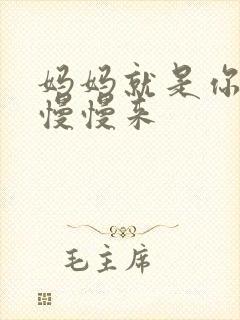 妈妈就是你
慢慢来
毛主席